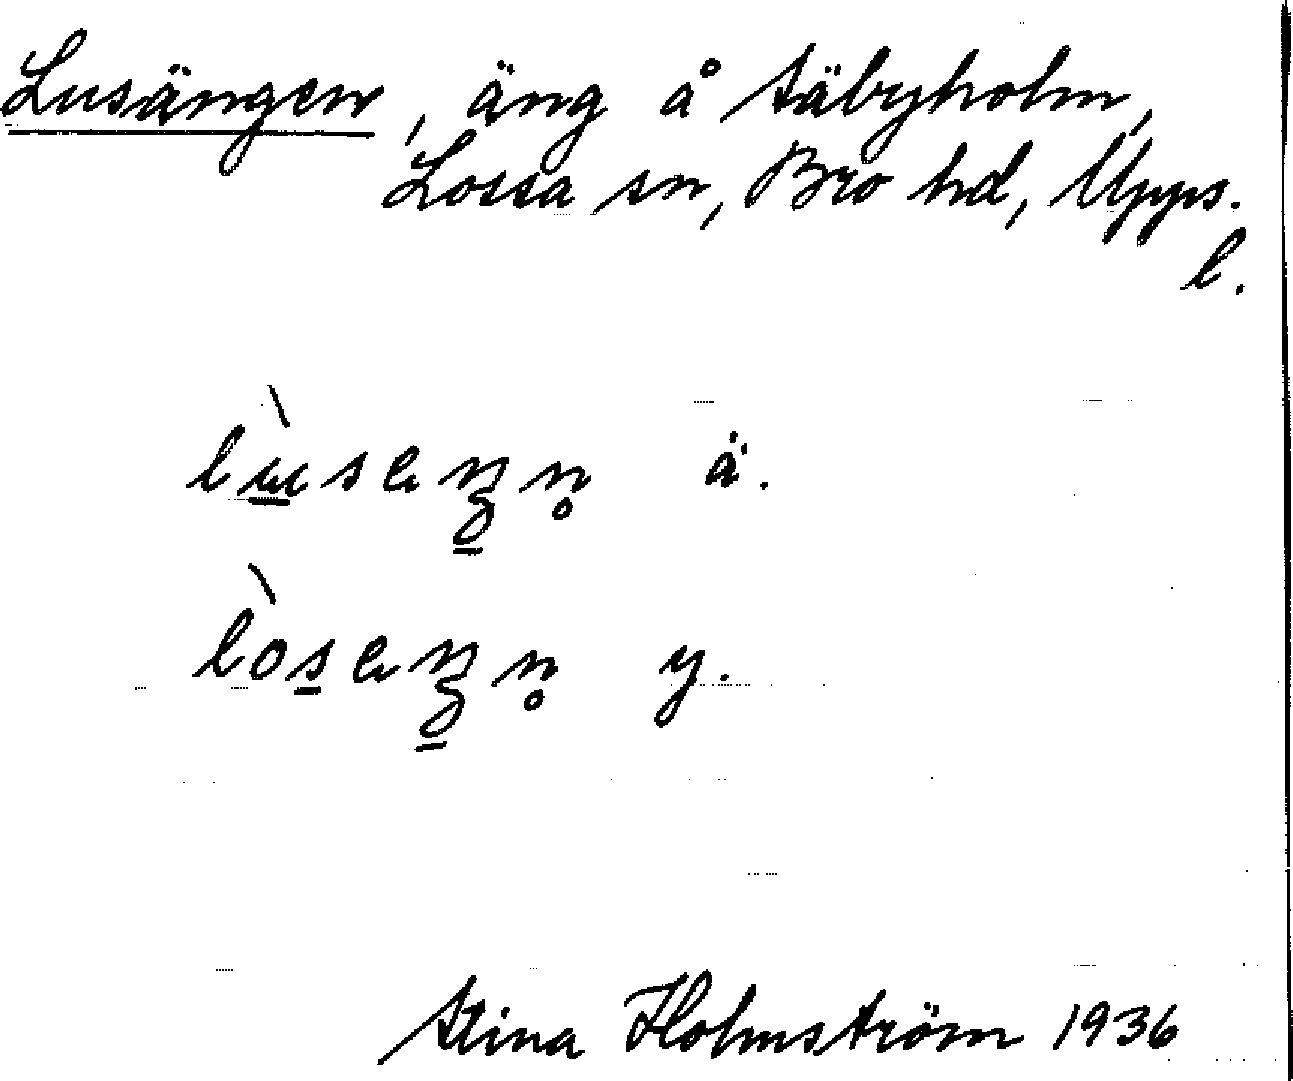 Lusängen, äng å Säbyholm,
Lossa sn, Bro hd, Upps.
l.
ä.
y.
Stina Holmström 1936